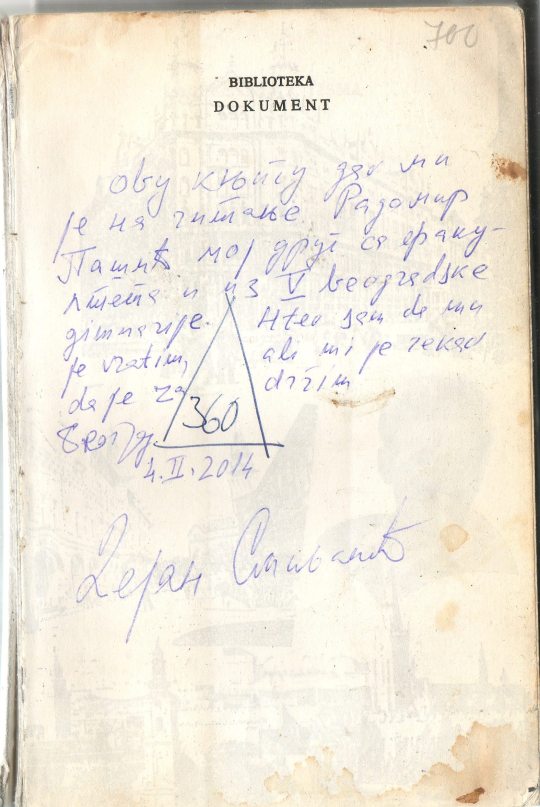 700
BIBLIOTEKA
DOKUMENT
Ову књигу дао ми
је на читање Радомир
мој друг са факу-
лтета и из V beogradske
gimnazije. Hteo sam da mu
je vratim, ali mi je rekao
da je za držim
360
4.II.2014
Дејан